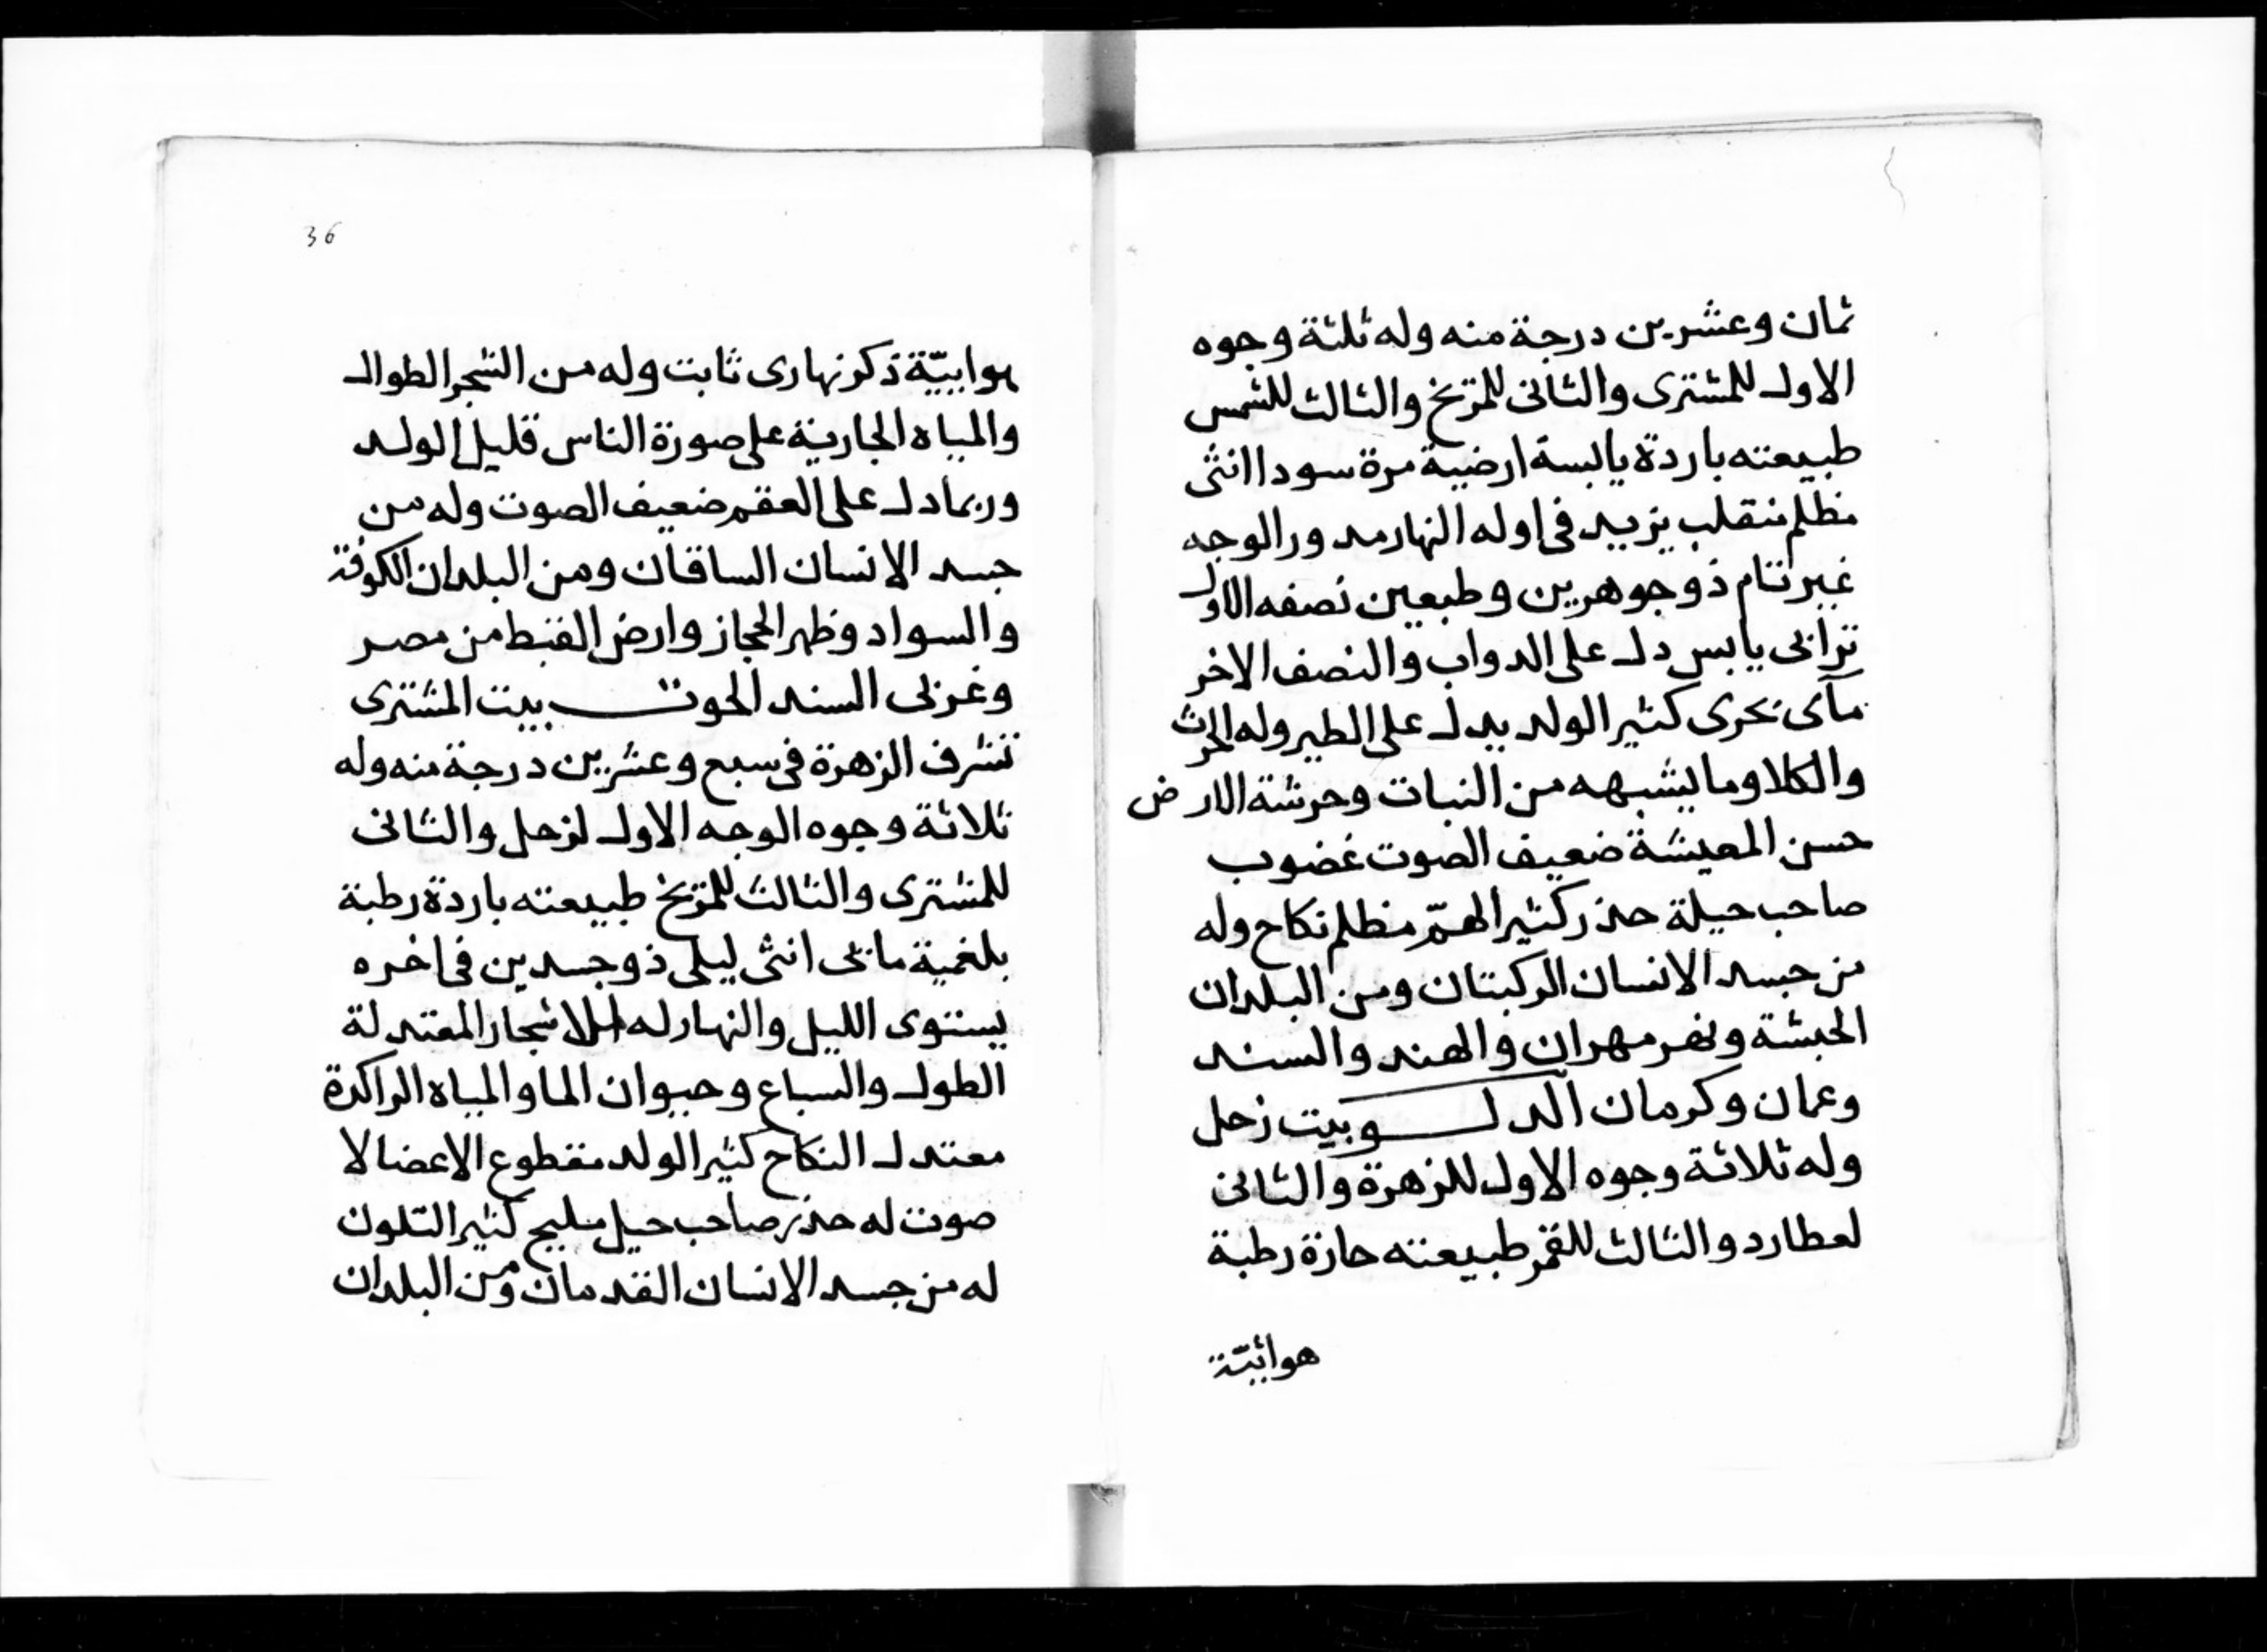 ثمان وعشرين درجة منه وله ثلثة وجوه
الاول للمشترى والثانى للمريخ والثالث للشمس
طبيعته باردة يابسة ارضية مرة سودا انثى
مظلم منقلب يزيد فى اوله النهار مدور الوجه
غير تام ذو جوهرين وطبعين نصفه الاول
ترابى يابس دل على الدواب والنصف الاخر
مآى بحرى كثير الولد يدل على الطير وله الحرث
والكلا وما يشبهه من النبات وحرشة الارض
حسن المعيشة ضعيف الصوت غضوب
صاحب حيلة حذر كثير الهمّ مظلم نكاح وله
من جسد الانسان الركبتان ومن البلدان
الحبشة ونهر مهران والهند والسند
وعمان وكرمان الدلو بيت زحل
وله ثلاثة وجوه الاول للزهرة والثانى
لعطارد والثالث للقمر طبيعته حارة رطبة
هوائيّة
36
هوابيّة ذكر نهارى ثابت وله من الشجر الطوال
والمياه الجارية على صورة الناس قليل الولد
وربما دل على العقم ضعيف الصوت وله من
جسد الانسان الساقان ومن البلدان الكوفة
والسواد وظهر الحجاز وارض القبط من مصر
وغربى السند الحوت بيت المشترى
تشرف الزهرة فى سبع وعشرين درجة منه وله
ثلاثة وجوه الوجه الاول لزحل والثانى
للمشترى والثالث للمريخ طبيعته باردة رطبة
بلغمية مائى انثى ليلى ذو جسدين فى اخره
يستوى الليل والنهار له الاشجار المعتدلة
الطول والسباع وحيوان الما والمياه الراكدة
معتدل النكاح كثير الولد مقطوع الاعضا لا
صوت له حذر صاحب حيل مليح كثير التلون
له من جسد الانسان القدمان ومن البلدان